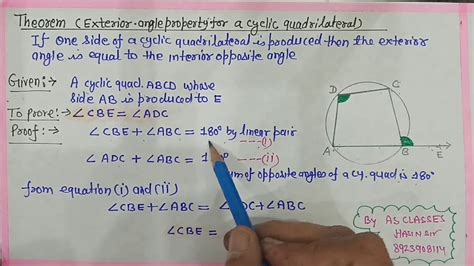 Theorem (Exterior-angle property for a cyclic quadrilateral)
If one side of a cyclic quadrilateral is produced then the exterior
angle is equal to the interior opposite angle
Given:→ A cyclic quad. ABCD whose
side AB is produced to E
To prove:→ ∠CBE = ∠ADC
Proof:→ ∠CBE + ∠ABC = 180° by linear pair
---(i)
∠ADC + ∠ABC = 1 ° ---(ii)
um of opposite angles of a cy. quad is 180°
from equation (i) and (ii)
∠CBE + ∠ABC = ∠ADC + ∠ABC
∠CBE =
D
C
A
B
E
By AS CLASSES
HASIN SIR
8923908114